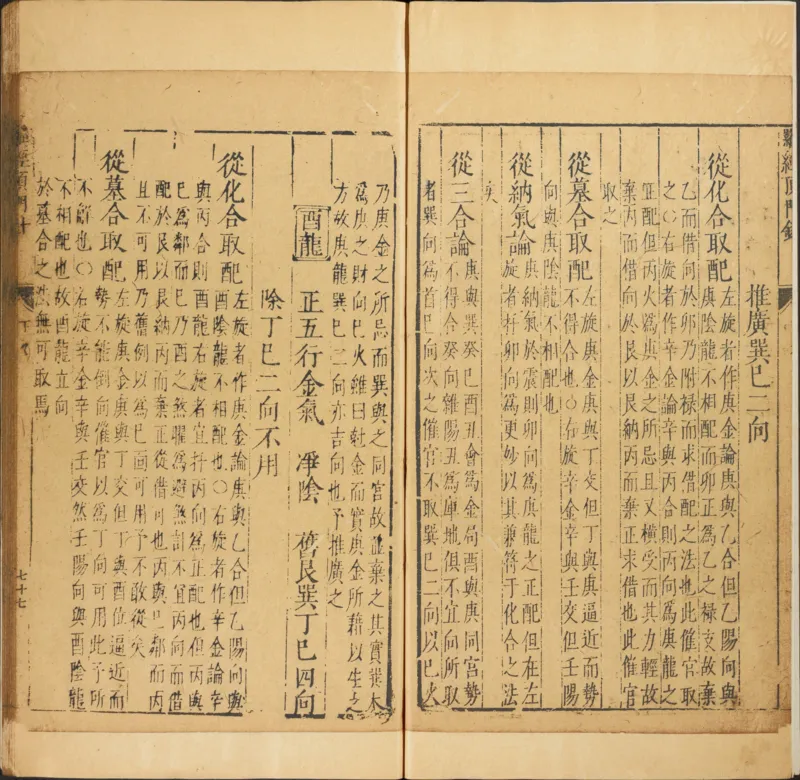 推廣巽巳二向
從化合取配
左旋者作庚金論庚與乙合但乙陽向與
庚陰龍不相配而卯正為乙之祿支故棄
乙而借向於卯乃附祿而求借配之法也此催官取
之○右旋者作辛金論辛與丙合則丙向為庚龍之
正配但丙火為庚金之所忌且又橫受而其力輕故
棄丙而借向於艮以艮納丙而棄正求借也此催官
取之
從墓合取配
左旋庚金庚與丁交但丁與庚逼近而勢
不得合也○右旋辛金辛與壬交但壬陽
向與庚陰龍不相配也
從納氣論
庚納氣於震則卯向為庚龍之正配但在左
旋者扦卯向為更妙以其兼符于化合之法
矣
從三合論
庚與巽癸巳酉丑會為金局酉與庚同宮勢
不得合癸向雜陽丑為庫地俱不宜向所取
者巽向為首巳向次之催官不取巽巳二向以巳火
乃庚金之所忌而巽與之同宮故並棄之其實巽木
為庚之財向巳火雖曰尅金而實庚金所藉以生之
方故庚龍巽巳二向亦吉向也予推廣之
酉龍 正五行金氣 淨陰 舊艮巽丁巳四向
除丁巳二向不用
從化合取配
左旋者作庚金論庚與乙合但乙陽向與
酉陰龍不相配也○右旋者作辛金論辛
與丙合則酉龍右旋者宜扦丙向為正配也但丙與
巳為鄰而巳乃酉之煞曜為避煞計不宜丙向而借
配於艮以艮納丙而棄正從借可也丙與巳鄰而丙
且不可用乃舊倒以為巳向可用予不敢從矣
從墓合取配
左旋庚金庚與丁交但丁與酉位逼近而
勢不能倒向催官以為丁向可用此予所
不解也○右旋辛金辛與壬交然壬陽向與酉陰龍
不相配也故酉龍立向
於墓合之法無可取焉
七十七